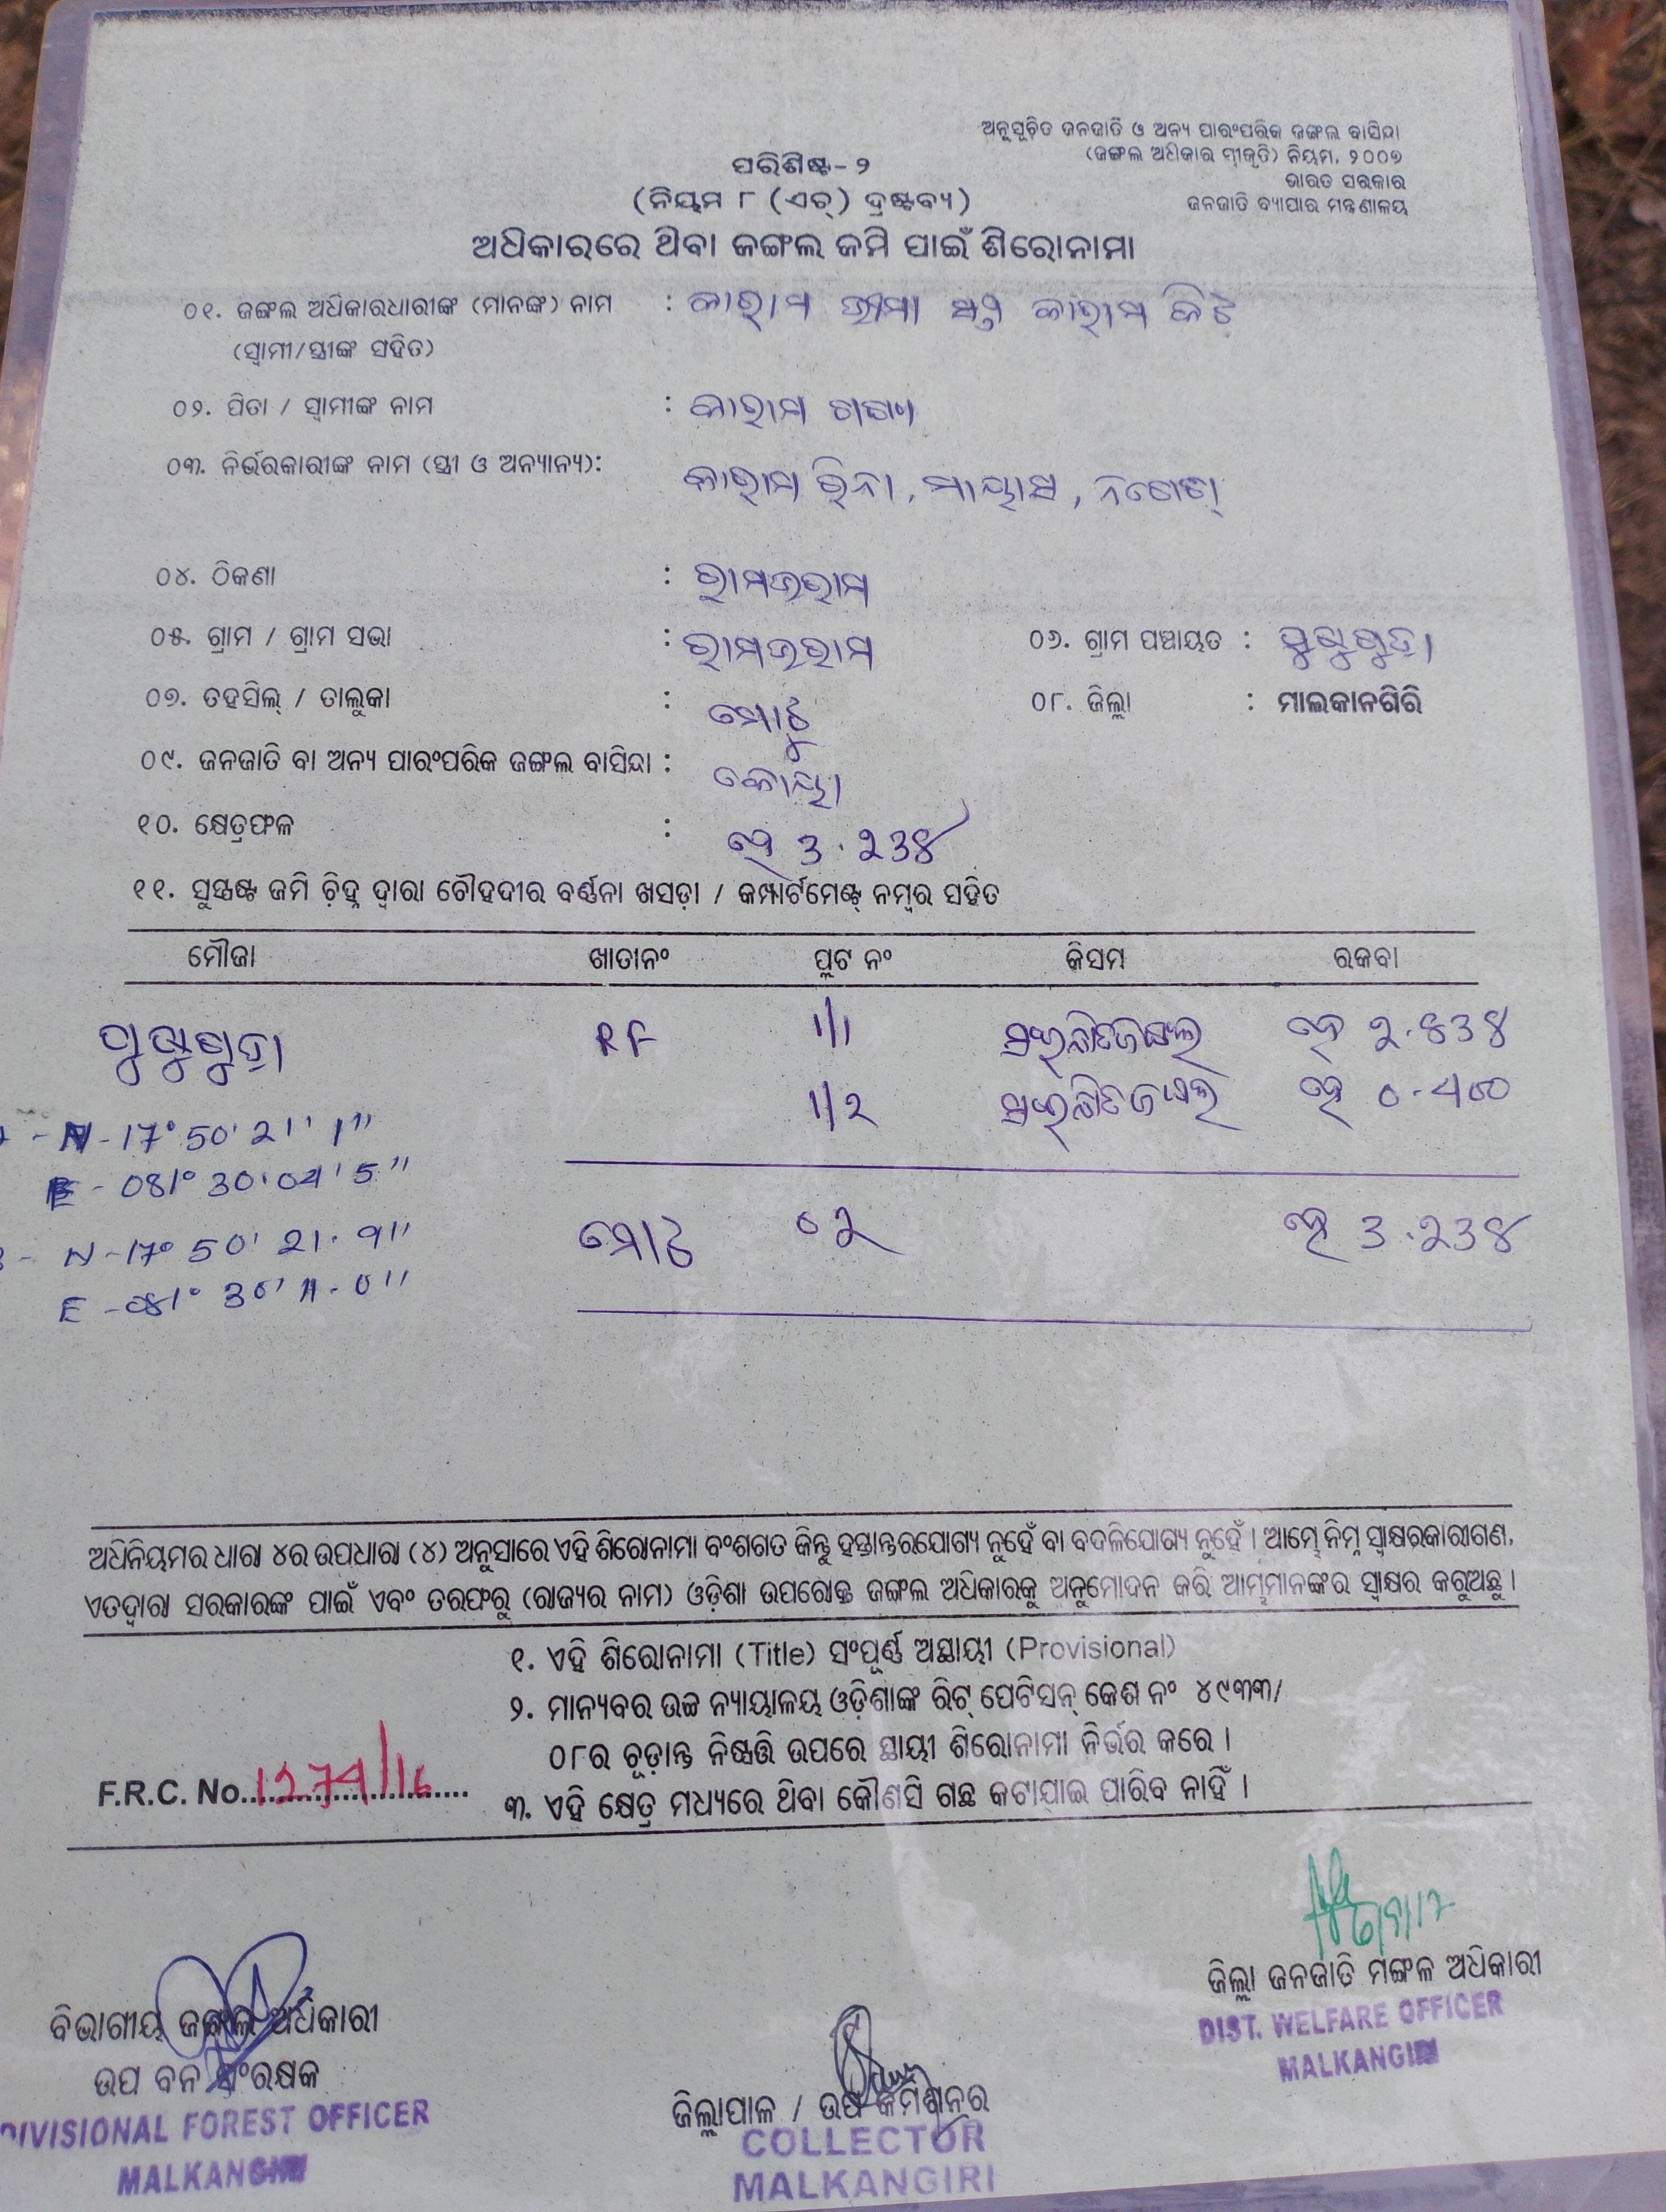 ଅନୁସୂଚିତ ଜନଜାତି ଓ ଅନ୍ୟ ପାରଂପରିକ ଜଙ୍ଗଲ ବାସିନ୍ଦା
(ଜଙ୍ଗଲ ଅଧିକାର ସ୍ୱୀକୃତି) ନିୟମ, ୨୦୦୭
ଭାରତ ସରକାର
ଜନଜାତି ବ୍ୟାପାର ମନ୍ତ୍ରଣାଳୟ
ପରିଶିଷ୍ଟ-୨
(ନିୟମ ୮ (ଏଚ୍) ଦ୍ରଷ୍ଟବ୍ୟ)
ଅଧିକାରରେ ଥିବା ଜଙ୍ଗଲ ଜମି ପାଇଁ ଶିରୋନାମା
୦୧. ଜଙ୍ଗଲ ଅଧିକାରଧାରୀଙ୍କ (ମାନଙ୍କ) ନାମ : କାରାମ
(ସ୍ୱାମୀ/ସ୍ତ୍ରୀଙ୍କ ସହିତ)
୦୨. ପିତା / ସ୍ୱାମୀଙ୍କ ନାମ : କାରାମ
୦୩. ନିର୍ଭରକାରୀଙ୍କ ନାମ (ସ୍ତ୍ରୀ ଓ ଅନ୍ୟାନ୍ୟ): କାରାମ ରିନା,
୦୪. ଠିକଣା :
୦୫. ଗ୍ରାମ / ଗ୍ରାମ ସଭା : ୦୬. ଗ୍ରାମ ପଞ୍ଚାୟତ :
୦୭. ତହସିଲ୍ / ତାଲୁକା : ମୋଟୁ ୦୮. ଜିଲ୍ଲା : ମାଲକାନଗିରି
୦୯. ଜନଜାତି ବା ଅନ୍ୟ ପାରଂପରିକ ଜଙ୍ଗଲ ବାସିନ୍ଦା : କୋୟା
୧୦. କ୍ଷେତ୍ରଫଳ : ହେ 3.୨3୪
୧୧. ସୁସ୍ପଷ୍ଟ ଜମି ଚିହ୍ନ ଦ୍ୱାରା ଚୌହଦୀର ବର୍ଣ୍ଣନା ଖସଡ଼ା / କମ୍ପାର୍ଟମେଣ୍ଟ୍ ନମ୍ବର ସହିତ
ମୌଜା ଖାତାନଂ ପ୍ଲଟ ନଂ କିସମ ରକବା
RF 1/1 ହେ ୨.୫3୪
1/୨ ହେ
N-17° 50' 21' 1"
E - 081° 30.04' 5"
N-17° 50' 21. 9"
E -081° 30' 11.0"
ମୋଟ ୦୨ ହେ 3.୨3୪
ଅଧିନିୟମର ଧାରା ୪ର ଉପଧାରା (୪) ଅନୁସାରେ ଏହି ଶିରୋନାମା ବଂଶଗତ କିନ୍ତୁ ହସ୍ତାନ୍ତରଯୋଗ୍ୟ ନୁହେଁ ବା ବଦଳିଯୋଗ୍ୟ ନୁହେଁ । ଆମ୍ଭେ ନିମ୍ନ ସ୍ୱାକ୍ଷରକାରୀଗଣ,
ଏତଦ୍ୱାରା ସରକାରଙ୍କ ପାଇଁ ଏବଂ ତରଫରୁ (ରାଜ୍ୟର ନାମ) ଓଡ଼ିଶା ଉପରୋକ୍ତ ଜଙ୍ଗଲ ଅଧିକାରକୁ ଅନୁମୋଦନ କରି ଆମ୍ଭମାନଙ୍କର ସ୍ୱାକ୍ଷର କରୁଅଛୁ ।
୧. ଏହି ଶିରୋନାମା (Title) ସଂପୂର୍ଣ୍ଣ ଅସ୍ଥାୟୀ (Provisional)
୨. ମାନ୍ୟବର ଉଚ୍ଚ ନ୍ୟାୟାଳୟ ଓଡ଼ିଶାଙ୍କ ରିଟ୍ ପେଟିସନ୍ କେଶ ନଂ ୪୯୩୩/
୦୮ର ଚୂଡ଼ାନ୍ତ ନିଷ୍ପତ୍ତି ଉପରେ ସ୍ଥାୟୀ ଶିରୋନାମା ନିର୍ଭର କରେ ।
F.R.C. No. 1274/16
୩. ଏହି କ୍ଷେତ୍ର ମଧ୍ୟରେ ଥିବା କୌଣସି ଗଛ କଟାଯାଇ ପାରିବ ନାହିଁ ।
ଜିଲ୍ଲା ଜନଜାତି ମଙ୍ଗଳ ଅଧିକାରୀ
DIST. WELFARE OFFICER
MALKANGIRI
ବିଭାଗୀୟ ଜଙ୍ଗଲ ଅଧିକାରୀ
ଉପ ବନ ସଂରକ୍ଷକ
DIVISIONAL FOREST OFFICER
MALKANGIRI
ଜିଲ୍ଲାପାଳ / ଉପ କମିଶନର
COLLECTOR
MALKANGIRI